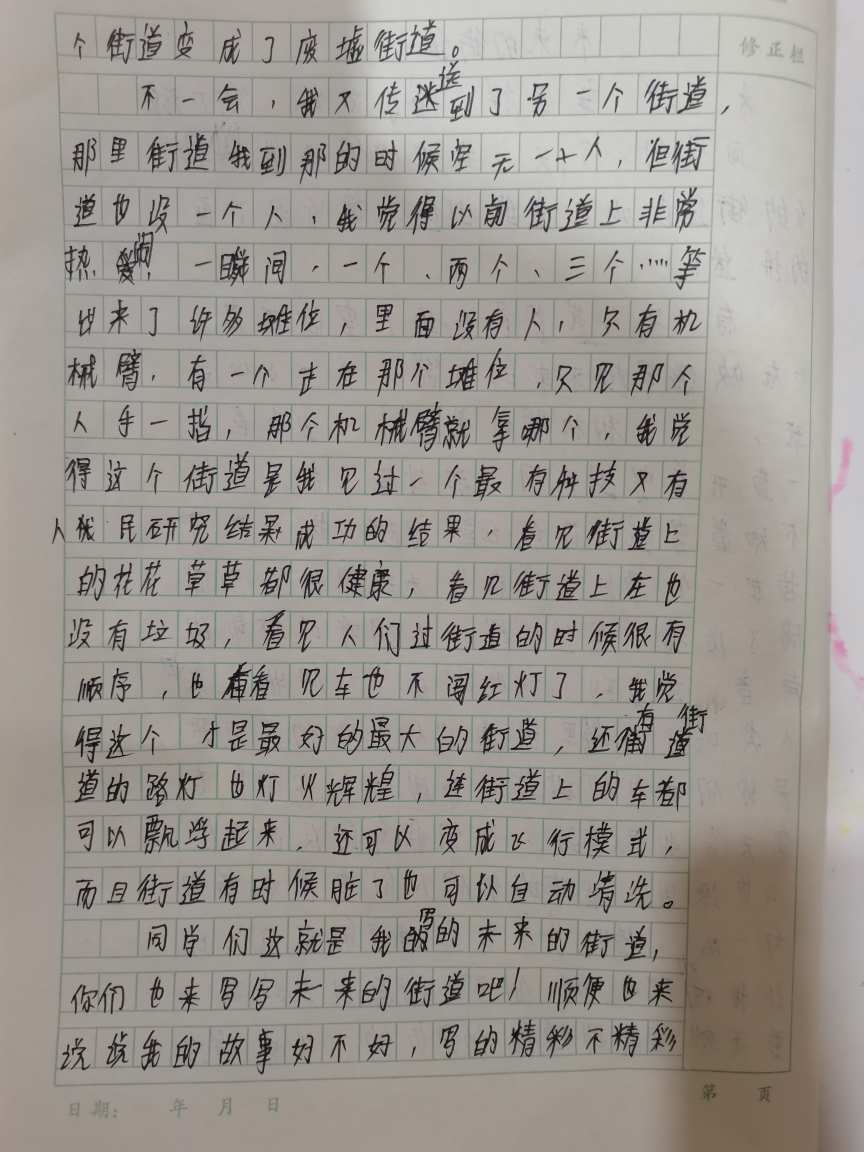 修正栏
个街道变成了废墟街道。
不一会，我又传送到了另一个街道，
那里街道我到那的时候空无一人，但街
道也没一个人，我觉得以前街道上非常
热闹！一瞬间，一个、两个、三个……等
出来了许多摊位，里面没有人，只有机
械臂，有一个走在那个摊位，只见那个
人手一指，那个机械臂就拿哪个，我觉
得这个街道是我见过一个最有科技又有
人民研究结果成功的结果，看见街道上
的花花草草都很健康，看见街道上在也
没有垃圾，看见人们过街道的时候很有
顺序，也看见车也不闯红灯了，我觉
得这个才是最好的最大的街道，还有街道
道的路灯也灯火辉煌，连街道上的车都
可以飘浮起来，还可以变成飞行模式，
而且街道有时候脏了也可以自动清洗。
同学们这就是我写的未来的街道，
你们也来写写未来的街道吧！顺便也来
说说我的故事好不好，写的精彩不精彩
日期： 年 月 日
第 页